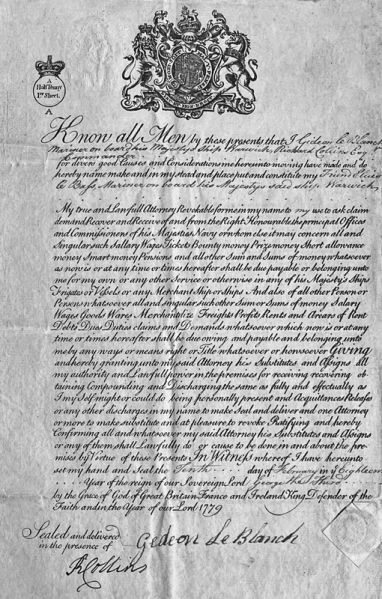 A
Half Penny
Pr. Sheet.
A
Know all Men by these presents that I Gideon Le Blanch
Mariner on board his Majestys Ship Warwick, Richard Collins Esq
Commander
for divers good Causes and Considerations me hereunto moving have made and do
hereby name make and in my stead and place put and constitute my Friend
Le Bass, Mariner on board his Majestys said ship Warwick,
My true and Lawfull Attorney Revokable for me in my name to my use to ask claim
demand Recover and Receive of and from the Right Honourable the principal Officers
and Commissioners of his Majesties Navy or whom else it may concern all and
Singular such Sallary Wages Tickets Bounty money Prize money Short allowance
money Smart money Pensions and all other Sum and Sums of money whatsoever
as now is or at any time or times hereafter shall be due payable or belonging unto
me for my own or any other Service or otherwise in any of his Majesty's Ships
Frigates or Vessels or any Merchant Ship or Ships And also of all other Person or
Persons whatsoever all and singular such other Sum or Sums of money Salary
Wages Goods Wares Merchandize Freights Profits Rents and Arears of Rent
Debts Dues Duties claims and Demands whatsoever which now is or at any
time or times hereafter shall be due owing and payable and belonging unto
me by any ways or means right or Title whatsoever or howsoever Giving
and hereby granting unto my said Attorney his Substitutes and Assigns all
my authority and Lawfull power in the premisses for receiving recovering ob
taining Compounding and Discharging the same as fully and effectually as
I my Self might or could do being personally present and Acquittances Releases
or any other discharges in my name to make Seal and deliver and one Attorney
or more to make substitute and at pleasure to revoke Ratifying and hereby
Confirming all and whatsoever my said Attorney his Substitutes and Assigns
or any of them shall Lawfully do or cause to be done in and about the pre
misses by Virtue of these Presents In Witness whereof I have hereunto
set my hand and Seal the Tenth day of February in ye Eighteen
Year of the reign of our Sovereign Lord George the Third
by the Grace of God of Great Britain France and Ireland King Defender of the
Faith and in the Year of our Lord 1779
Sealed and delivered
in the presence of
Gedeon Le Blanch
R Collins